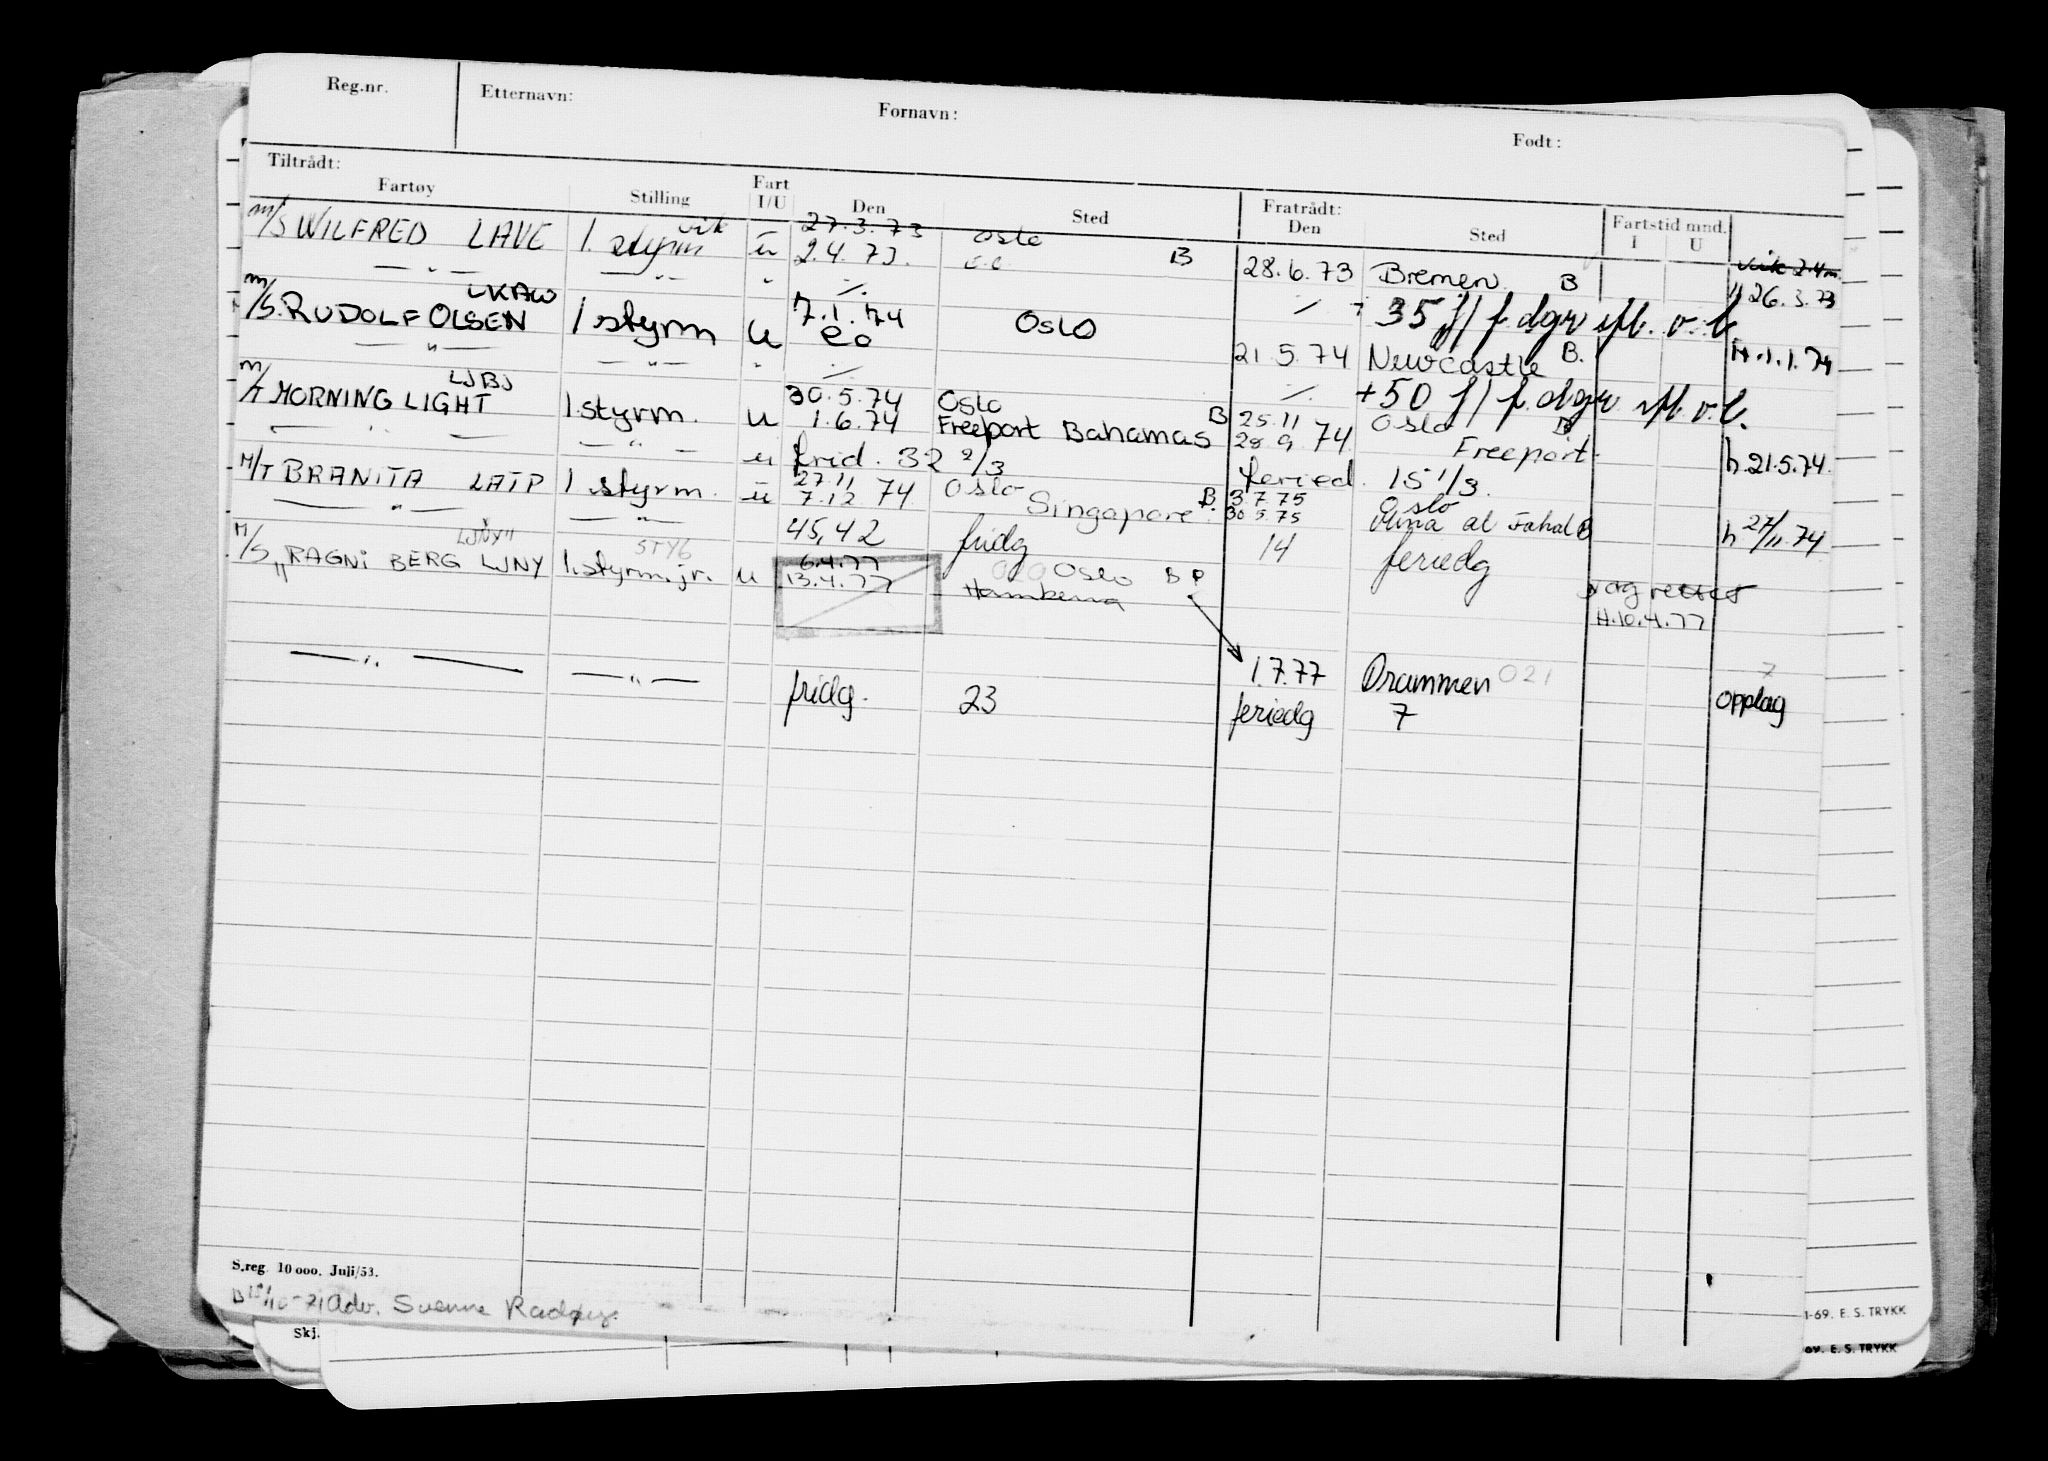 Reg.nr. Etternavn: Fornavn: Født:
Tiltrådt: Fratrådt:
Fartøy Stilling Fart I/U Den Sted Den Sted Fartstid mnd. I U
M/S WILFRED LAVE 1. styrm vik u 27.3.73 Oslo
2.4.73. B 28.6.73 Bremen B vik 2.4
— " — — " — " ./. 26.3.73
M/S. RUDOLF OLSEN LKAW 1 styrm u 7.1.74 Oslo ./. + 35 f/f. dgr
eo
— " — — " — " ./. 21.5.74 Newcastle B. H.1.1.74
M/T MORNING LIGHT LJBJ 1 styrm. u 30.5.74 Oslo ./. +50 f/f. dgr
1.6.74 Freeport Bahamas B 25.11 Oslo B
— " — — " — u frid. 32 2/3 28.9.74 Freeport h 21.5.74.
M/T BRANITA LATP 1 styrm. u 27.11 74 Oslo feried. 15 1/3.
7.12 Singapore B. 3.7.75 Oslo
— " — — " — 30.5.75 Mina al Fahal B h 27/11.74
45,42 fridg 14 feriedg
M/S „RAGNI BERG LJNY" LJNY 1. styrm. jr. STY6 u 6.4.77 Oslo B
13.4.77 og rettet
H.10.4.77
— " — — " — 1.7.77 Drammen 021 7
fridg. 23 feriedg 7 opplag
S.reg. 10 000. Juli/53.
Adv.
1-69. E. S. TRYKK
Skj.
ov. E. S. TRYKK